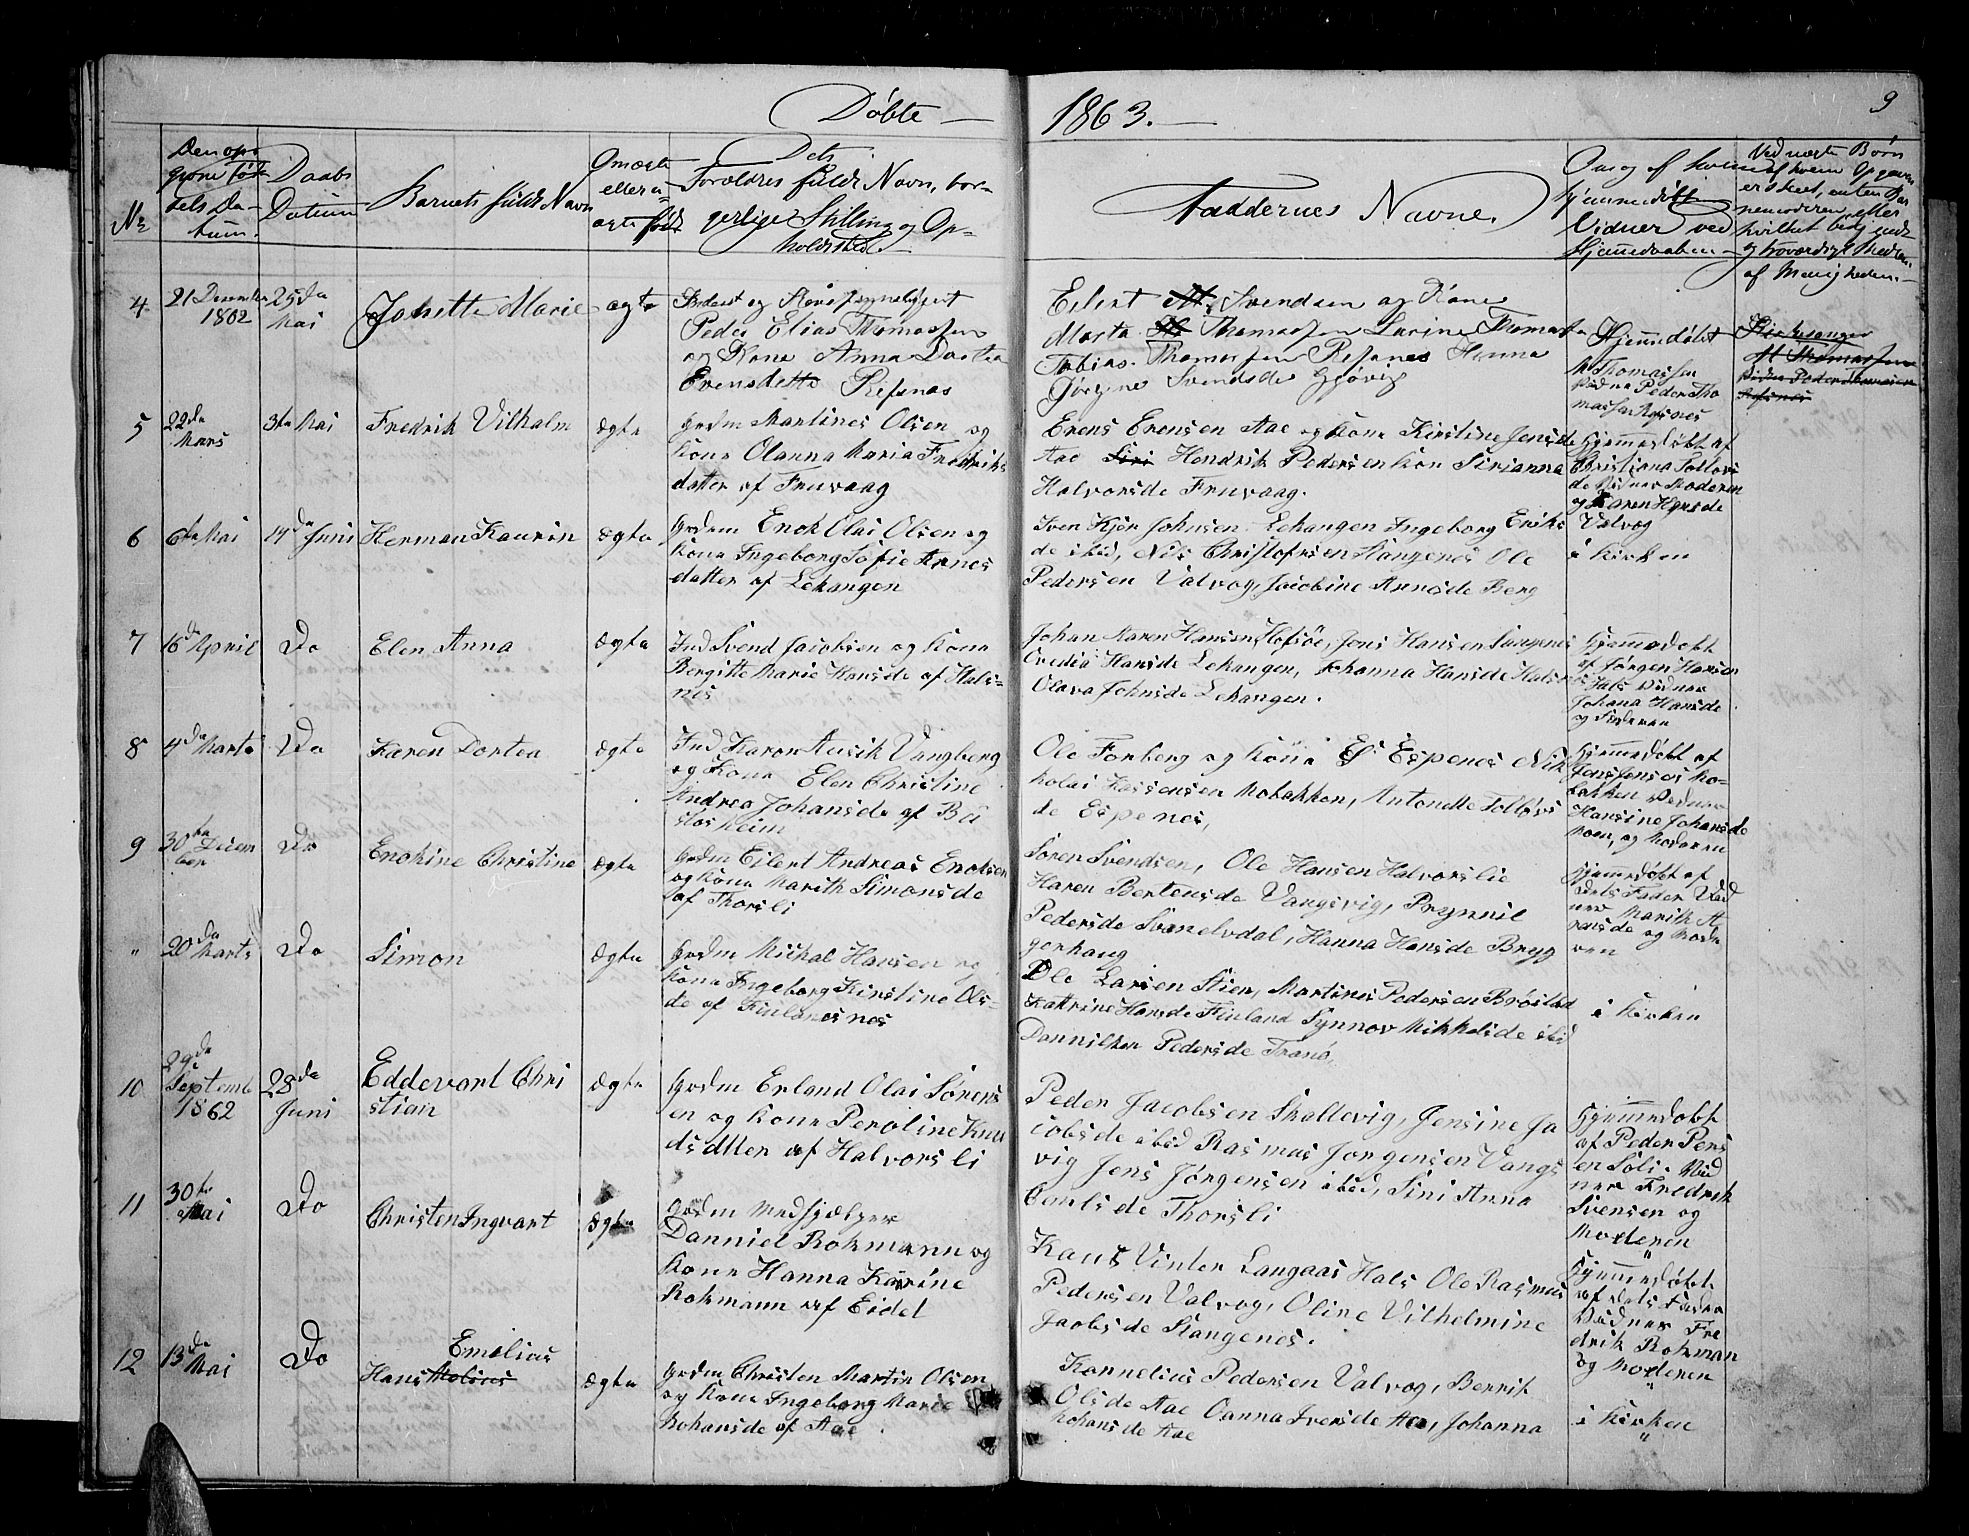 Døbte 1863. 9
No
Den opgivne Fødselsdatum.
Daabs Datum
Barnets fulde Navn
Om ægte eller uægte født
Dets Forældres fulde Navn, borgerlige Stilling og Opholdsted.
Faddernes Navne.
Om og af hvem hjemmedøbt Vidner ved Hjemmedaaben
4 21 December 1862 25da Mai Johette Marie ægte
Peder Elias Thomassen
og Kone Anna Dortea
Erensdette Refsnæs
Eilert Svendsen og Kone
Marta Thomassen Larine Thomas
Tobias Thomassen Refsnes Hanna
Jørgine Svendsde Gjøvig
Hjemmdøbt
Thomassen
Vidne Peder Tho
massen Refsnes
5 22da Mars 3die Mai Fredrik Vilhalm ægte
Grdm Martines Olsen og
Kona Olanna Maria Fredriks
datter af Fruvaag
Erens Erensen Aae og Kona Kirstine Jensde
Aae Siri Hendrik Pedersen Kon Sirianna
Halvorsde Fruvaag.
Hjemmedøbt af
Christiana Tollevs
de Vidner Moderen
og Karen Hansde
Valvog
6 6te Mai 14da Juni Herman Kaurin ægte
Grdm Enok Olai Olsen og
Kona Ingeborg Sofie Arnes
datter af Lekangen
Sven Kjør Johnsen Lekangen Ingeborg Eriks
de ibid, Nils Christofersen Stangenes Ole
Pedersen Valvog, Jacobine Arnesde Berg
i Kirken
7 16da April Do Elen Anna ægte
Ind Svend Jacobsen og Kona
Bergitte Marie Hansde af Hals
nes
Johan Karen Hansen Hofsøe, Jens Hansen Stangenes
Hansde Lekangen, Johanna Hansde Hals
Olava Johnsde Lekangen.
Hjemmedøbt
af Jørgen Hansen
Hals Vidner
Johana Hansde
og Faderen
8 4da Marts Do Karen Dortea ægte
Ind Karen Vangberg
og Kona Elen Christine
Andrea Johansde af Bu
stosheim
Ole Forberg og Kona Espenes Nik
kolai Jenssen Mobakken, Antonette Tollevs
de Espenes,
Hjemmedøbt af
Jens Jensen Mo
bakken Vidner
Hansine Johansde
Moen, og Moderen
9 30te Decem ber Do Enokine Christine ægte
Grdm Eilert Andreas Enoksen
og Kona Marith Simonsde
af Thorsli
Søren Svendsen, Ole Hansen Halvorslie
Haren Bertensde Vangsvig, Prynnil
Pedersde Svanelvdal, Hanna Hansde Bryg
gerhaug
Hjemmedøbt af
Dets Fader Vid
ner Marith A
rensde og Mode
ren
" 20da Marts Do Simon ægte
Grdm Mickal Hansen og
Kona Ingeborg Kirstine Ols
de af Finlandsnes
Ole Larsen Stien, Martines Pedersen Brøstad
Katrine Hansde Finland Synnov Mikkelsde ibid
Dannilken Pedersde Tranø,
i Kirken
10 29da Septemb 1862 28da Juni Eddevart Chri
stian ægte
Grdm Erland Olai Sørens
en og Kona Peroline Knu
dsdtter af Halvorsli
Peder Jacobsen Skallevig, Jensine Ja
cobsde ibid Rasmus Jørgensen Vangs
vig Jens Jørgensen ibid, Sini Anna
Carlsde Thorsli
Hjemmedøbt
af Peder Pers
en Soli. Vid
ner Fredrik
Svensen og
Moderen
11 30te Mai Do Christen Ingvart ægte
Grdm Medhjælper
Danniel Rokmann og
Kona Hanna Karine
Rokmann af Eidet
Knut Vinter Langaas Hals Ole Rasmus
Pedersen Valvog, Oline Vilhelmine
Jacobsde Stangenes.
Hjemmedøbt
af Dets Fader
Vidner Fre
drik Rokman
og Moderen
12 13da Mai Do Emelius
Hans ægte
Grdm Christen Martin Olsen
og Kona Ingeborg Marie
Johansde af Aae
Kornelius Pedersen Valvog, Berrit
Olsde Aae Oanna Iversde Aae, Johanna
Johansde Aae
i Kirken